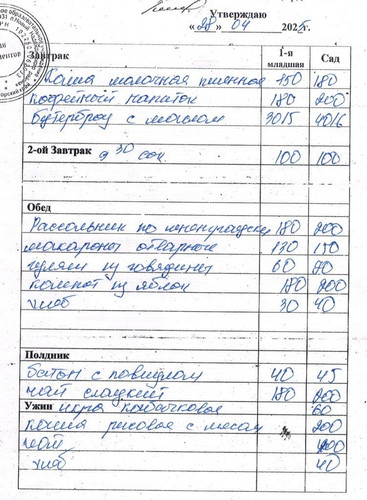 Утверждаю
«28» 04 2025г.
Завтрак 1-я младшая Сад
Каша молочная пшенная 150 180
Кофейный напиток 180 200
Бутерброд с маслом 30/5 40/6
2-ой Завтрак 9 30 сок 100 100
Обед
Рассольник по ленинградски 180 200
макароны отварные 130 150
гуляш из говядины 60 80
компот из яблок 180 200
хлеб 30 40
Полдник
батон с повидлом 40 45
чай сладкий 180 200
Ужин икра кабачковая 60
каша рисовая с мясом 200
чай 200
хлеб 40